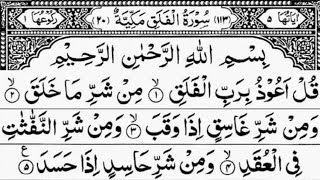 اٰيَاتُهَا ٥ (١١٣) سُوْرَةُ الْفَلَقِ مَكِّيَّةٌ (٢٠) رُكُوْعُهَا ١
بِسْمِ اللّٰهِ الرَّحْمٰنِ الرَّحِيْمِ
قُلْ اَعُوْذُ بِرَبِّ الْفَلَقِ ۙ‏﴿۱﴾ مِنْ شَرِّ مَا خَلَقَ ۙ‏﴿۲﴾
وَمِنْ شَرِّ غَاسِقٍ اِذَا وَقَبَ ۙ‏﴿۳﴾ وَمِنْ شَرِّ النَّفّٰثٰتِ
فِى الْعُقَدِ ۙ‏﴿۴﴾ وَمِنْ شَرِّ حَاسِدٍ اِذَا حَسَدَ ع‏﴿۵﴾